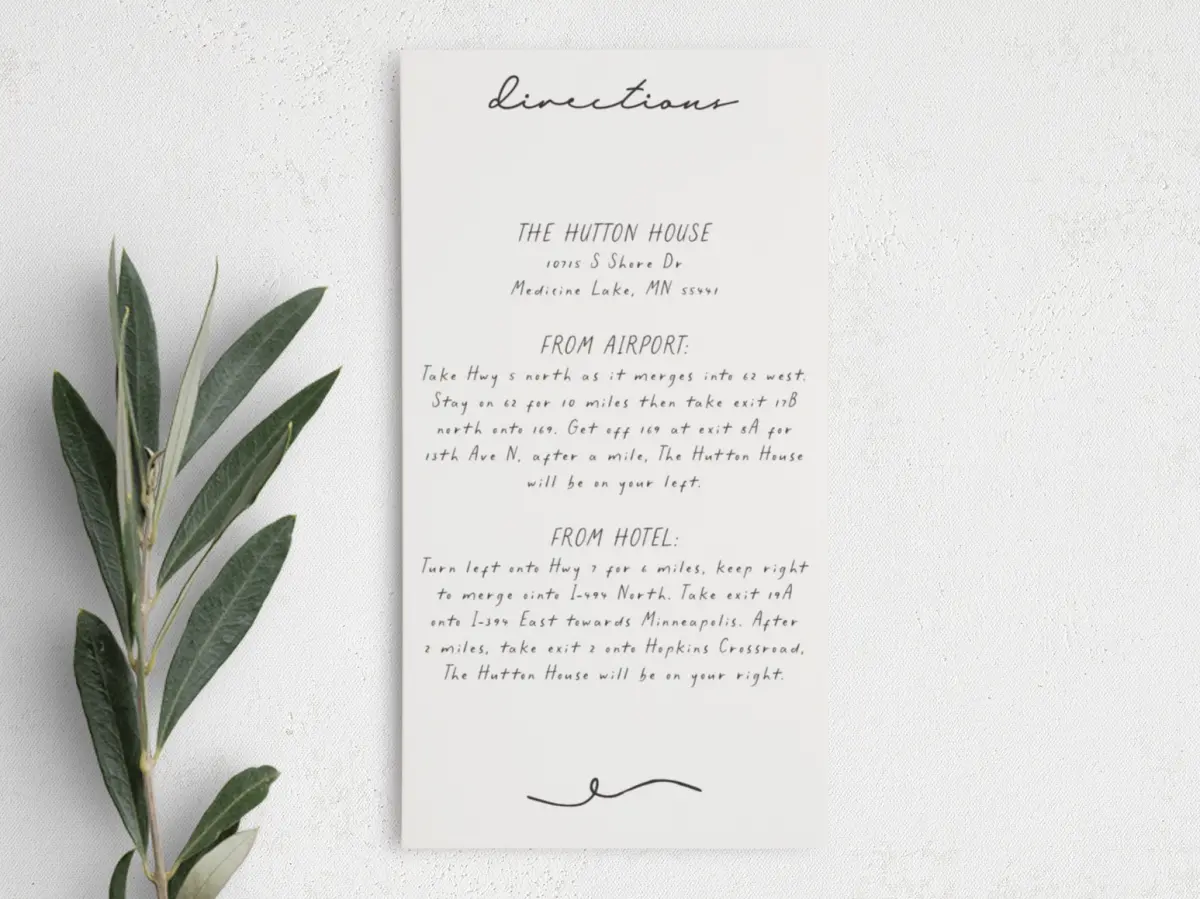 directions
THE HUTTON HOUSE
10715 S Shore Dr
Medicine Lake, MN 55441
FROM AIRPORT:
Take Hwy 5 north as it merges into 62 west.
Stay on 62 for 10 miles then take exit 17B
north onto 169. Get off 169 at exit 8A for
13th Ave N, after a mile, The Hutton House
will be on your left.
FROM HOTEL:
Turn left onto Hwy 7 for 6 miles, keep right
to merge ointo I-494 North. Take exit 19A
onto I-394 East towards Minneapolis. After
2 miles, take exit 2 onto Hopkins Crossroad,
The Hutton House will be on your right.